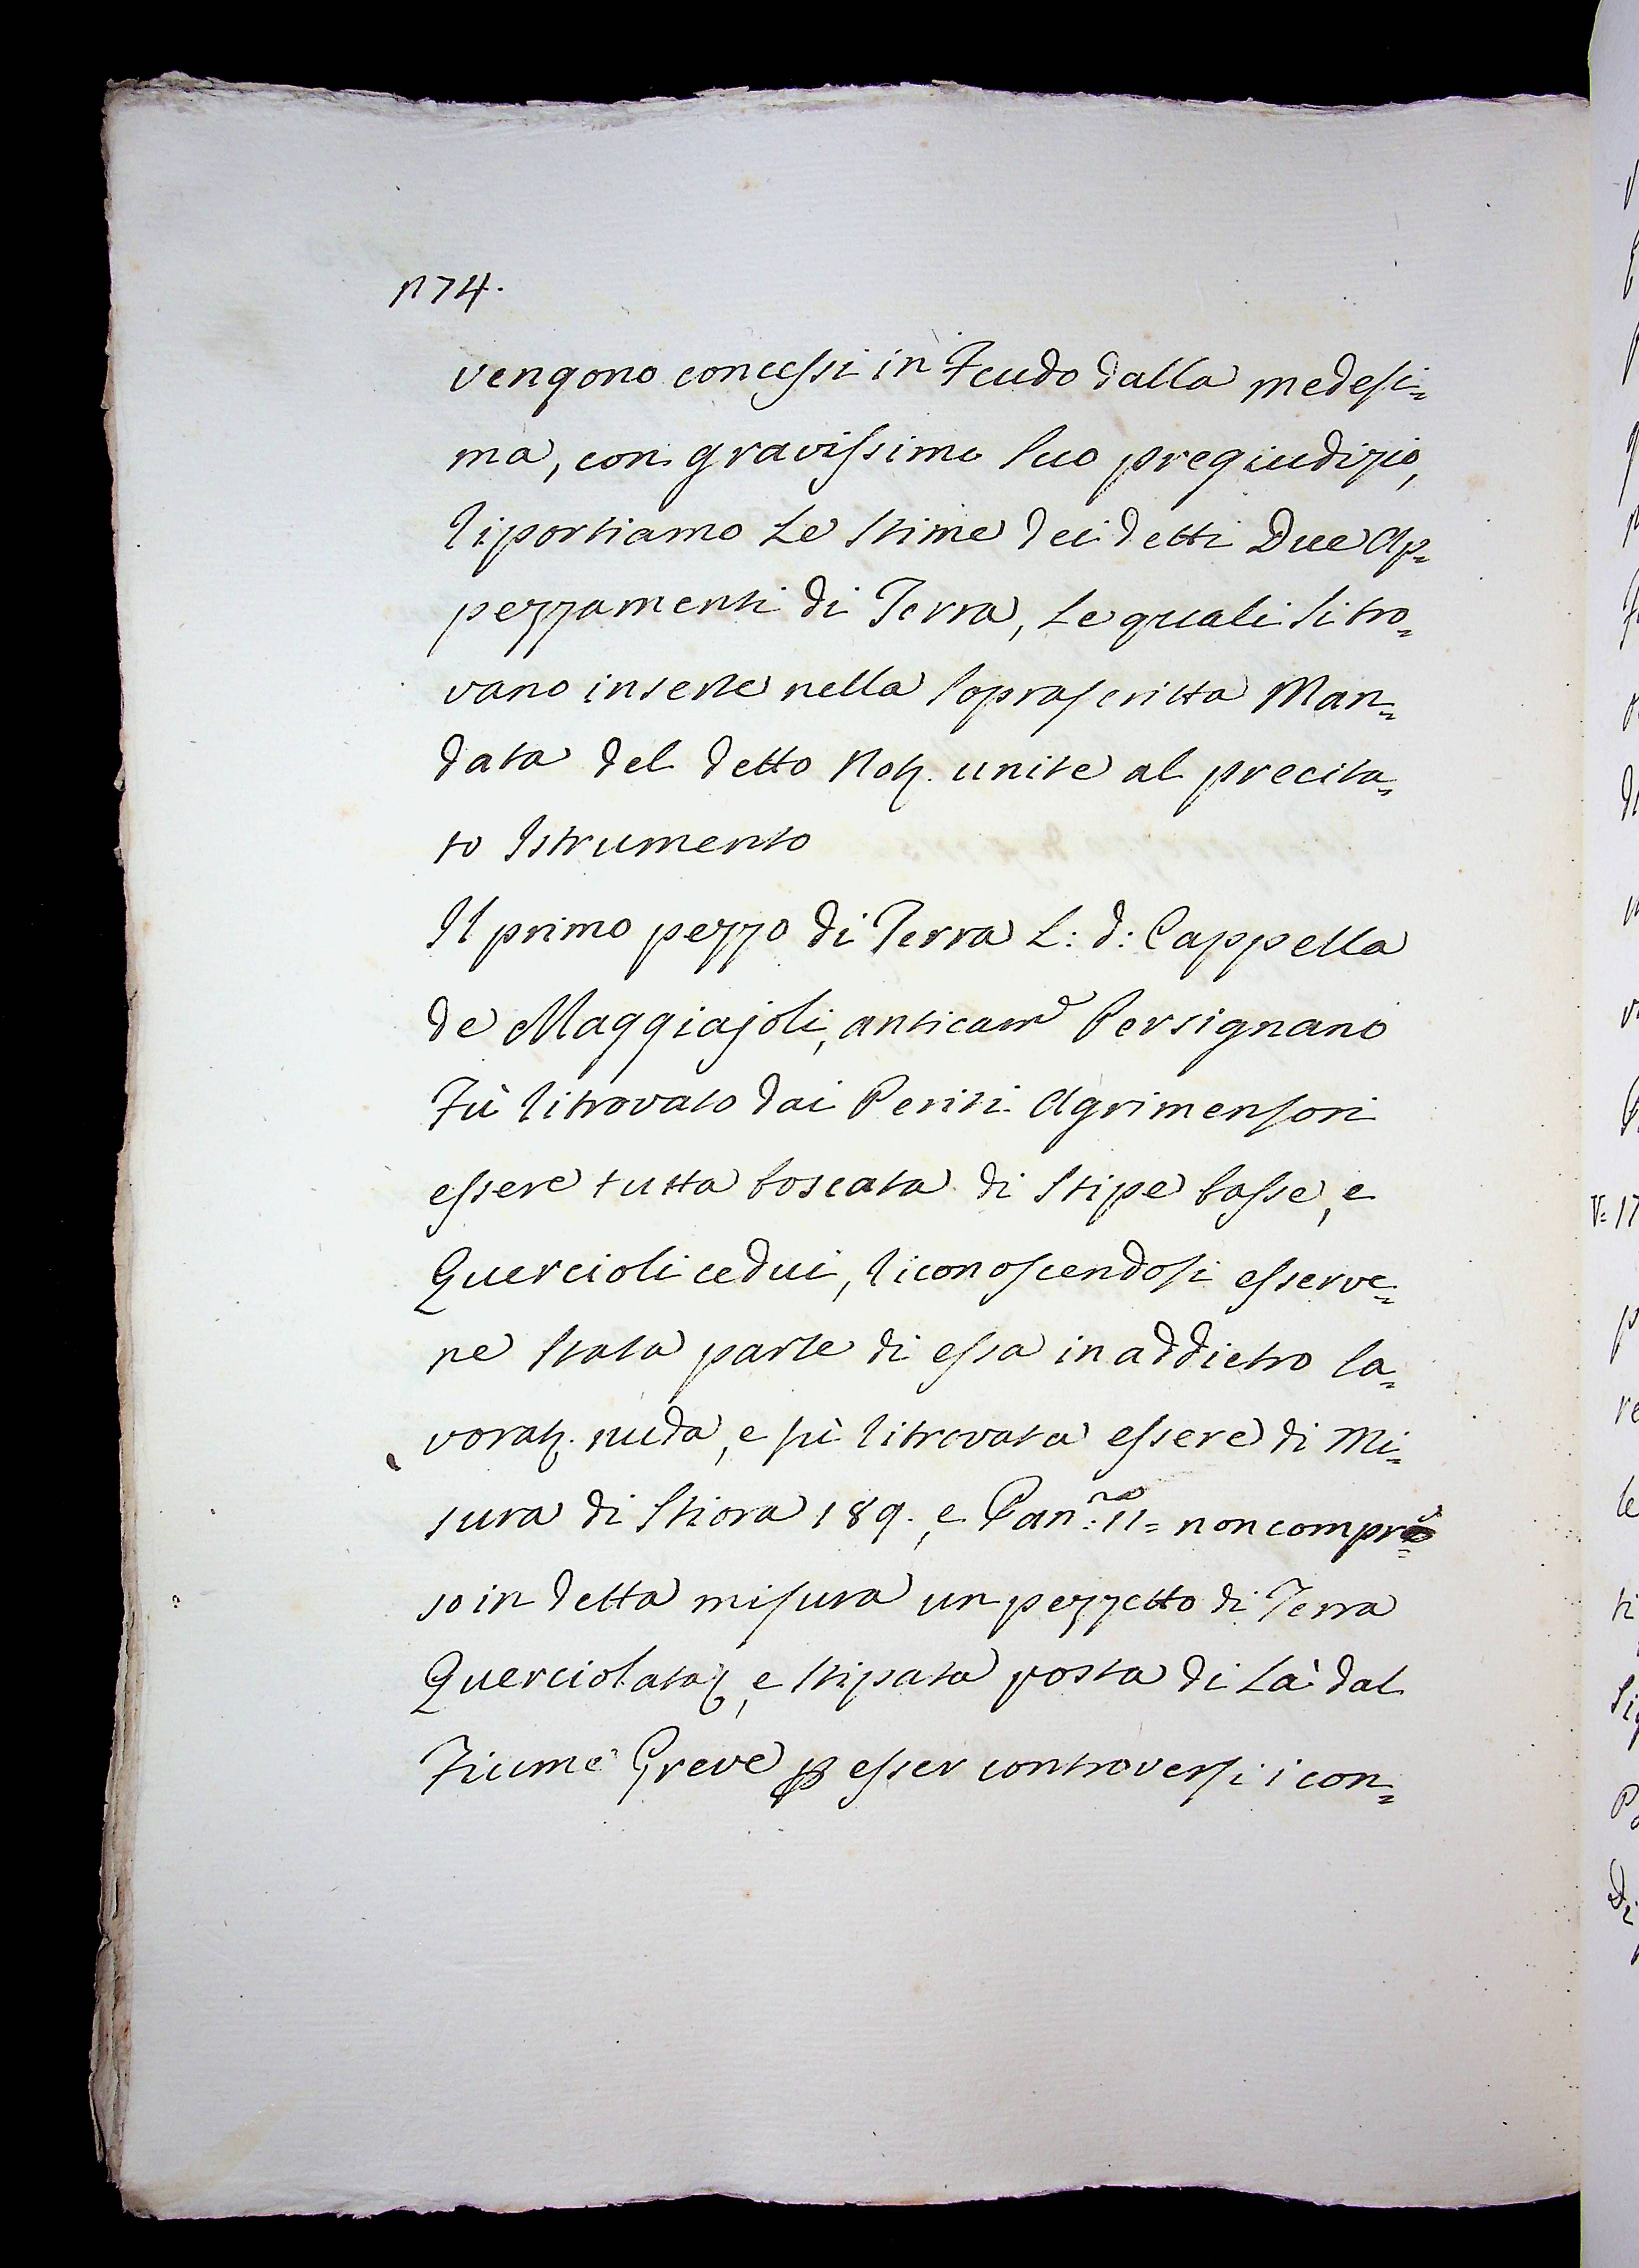 n 74.
vengono concessi in Feudo dalla medesi=
ma, con gravissimo suo pregiudizio,
riportiamo le stime dei detti Due Ap=
pezzamenti di Terra, le quali si tro=
vano inserte nella soprascritta Man=
data del detto Not. unite al precita=
to Istrumento
Il primo pezzo di Terra L: d: Cappella
de Maggiajoli, anticam.e Persignano
Fù ritrovato dai Periti Agrimensori
essere tutta boscata di stipe basse, e
Quercioli cedui, riconoscendosi esserve=
ne stata parte di essa in addietro la=
vorat. nuda, e fù ritrovata essere di Mi=
sura di Stiora 189. e Pan:ra 11= non compre=
so in detta misura un pezzetto di Terra
Querciolata, e stipata posta di Là dal
Fiume Greve p esser controversi i con=